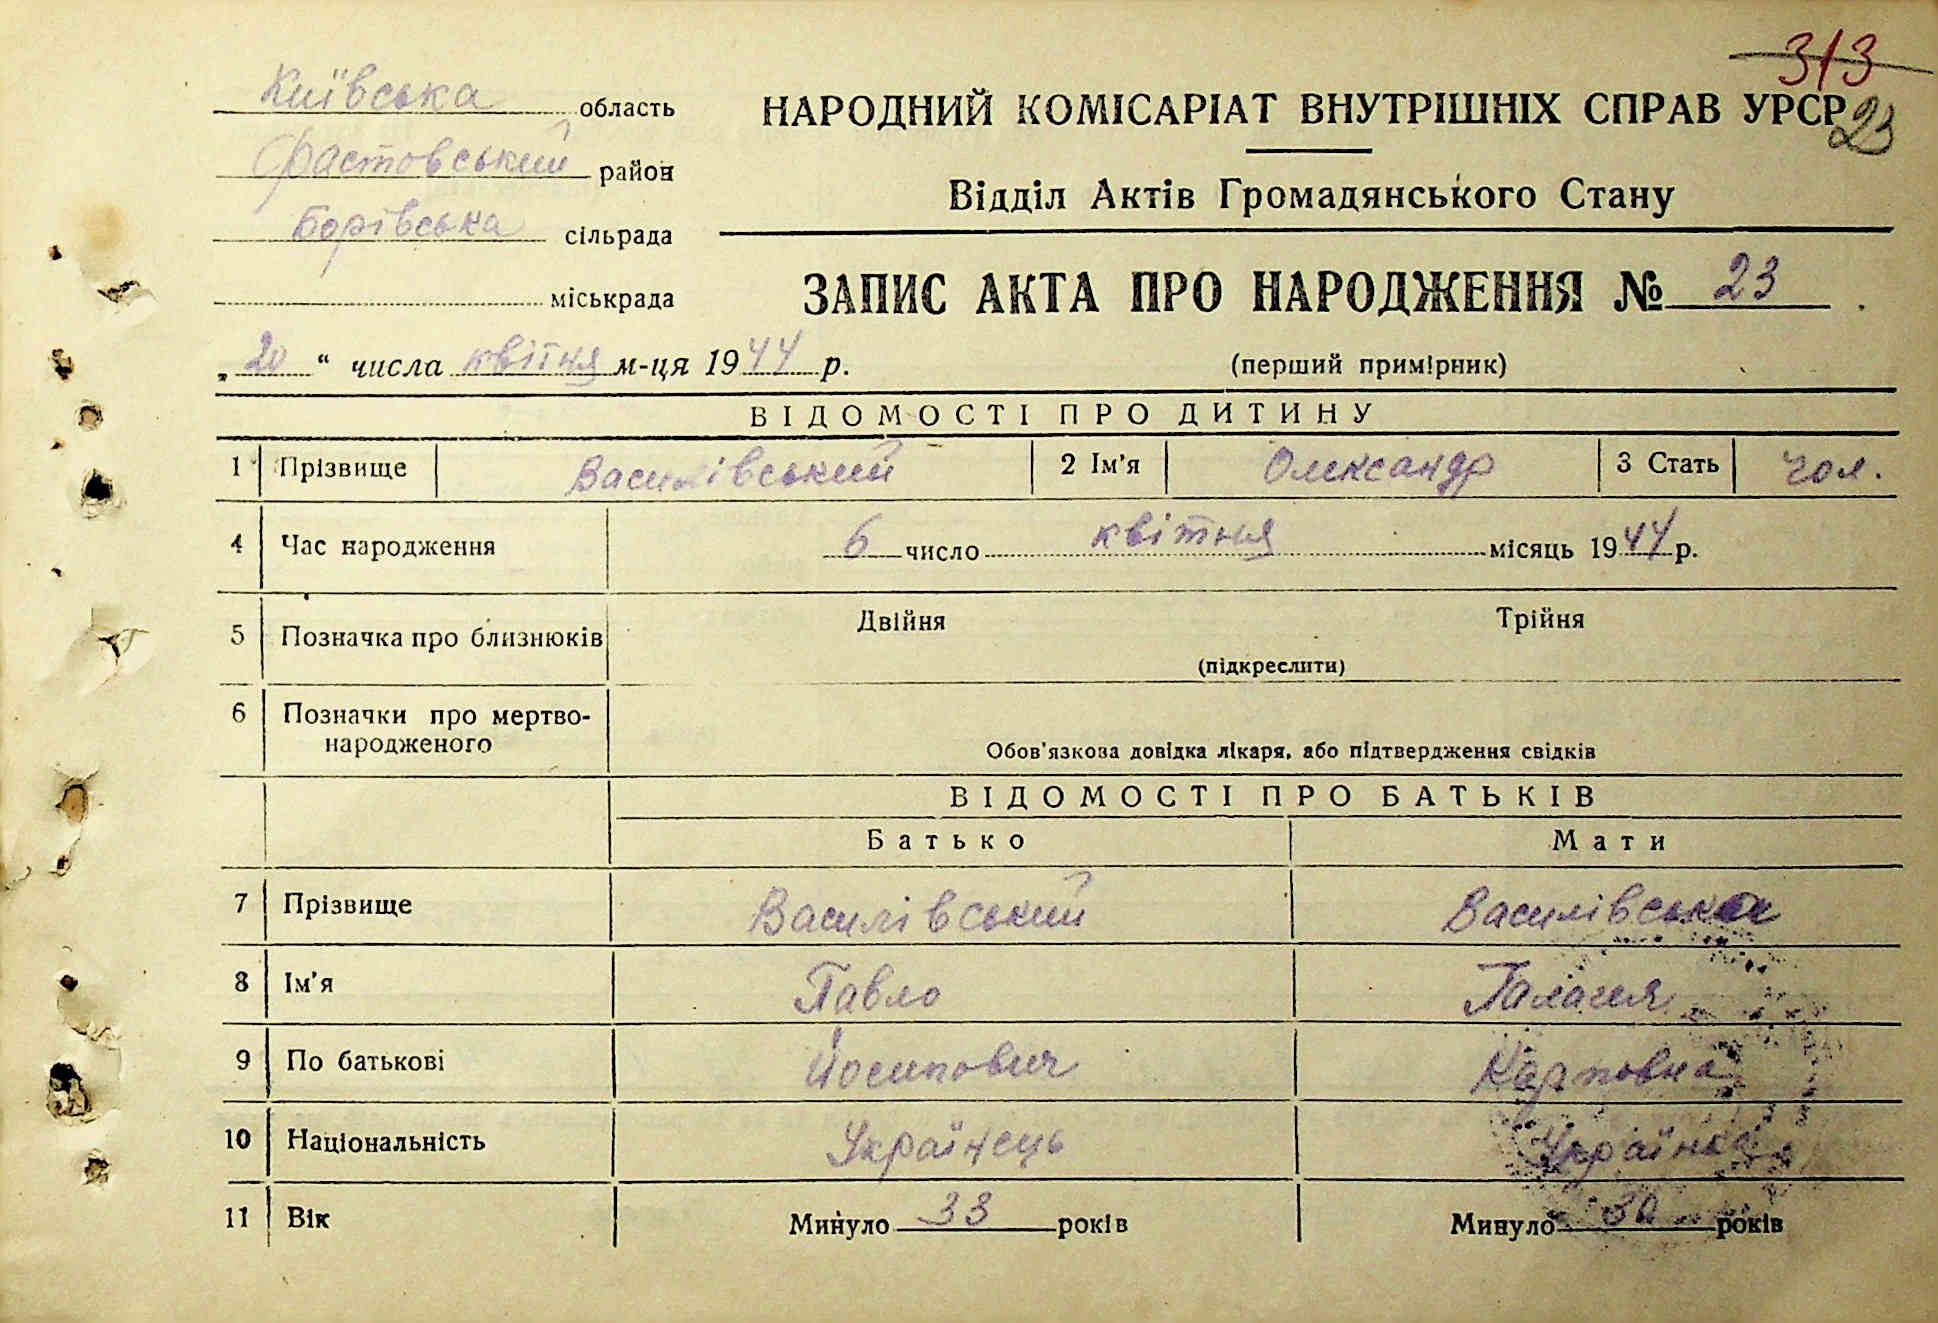 313
23
Київська область
Фастовський район
Борівська сільрада
міськрада
НАРОДНИЙ КОМІСАРІАТ ВНУТРІШНІХ СПРАВ УРСР
Відділ Актів Громадянського Стану
ЗАПИС АКТА ПРО НАРОДЖЕННЯ № 23
„20“ числа квітня м-ця 1944 р.
(перший примірник)
ВІДОМОСТІ ПРО ДИТИНУ
1 Прізвище Василівський 2 Ім'я Олександр 3 Стать чол.
4 Час народження 6 число квітня місяць 1944 р.
5 Позначка про близнюків Двійня Трійня
(підкреслити)
6 Позначки про мертво-
народженого
Обов'язкова довідка лікаря, або підтвердження свідків
ВІДОМОСТІ ПРО БАТЬКІВ
Батько Мати
7 Прізвище Василівський Василівська
8 Ім'я Павло
9 По батькові Йосипович Карповна
10 Національність Українець Українка
11 Вік Минуло 33 років Минуло 30 років